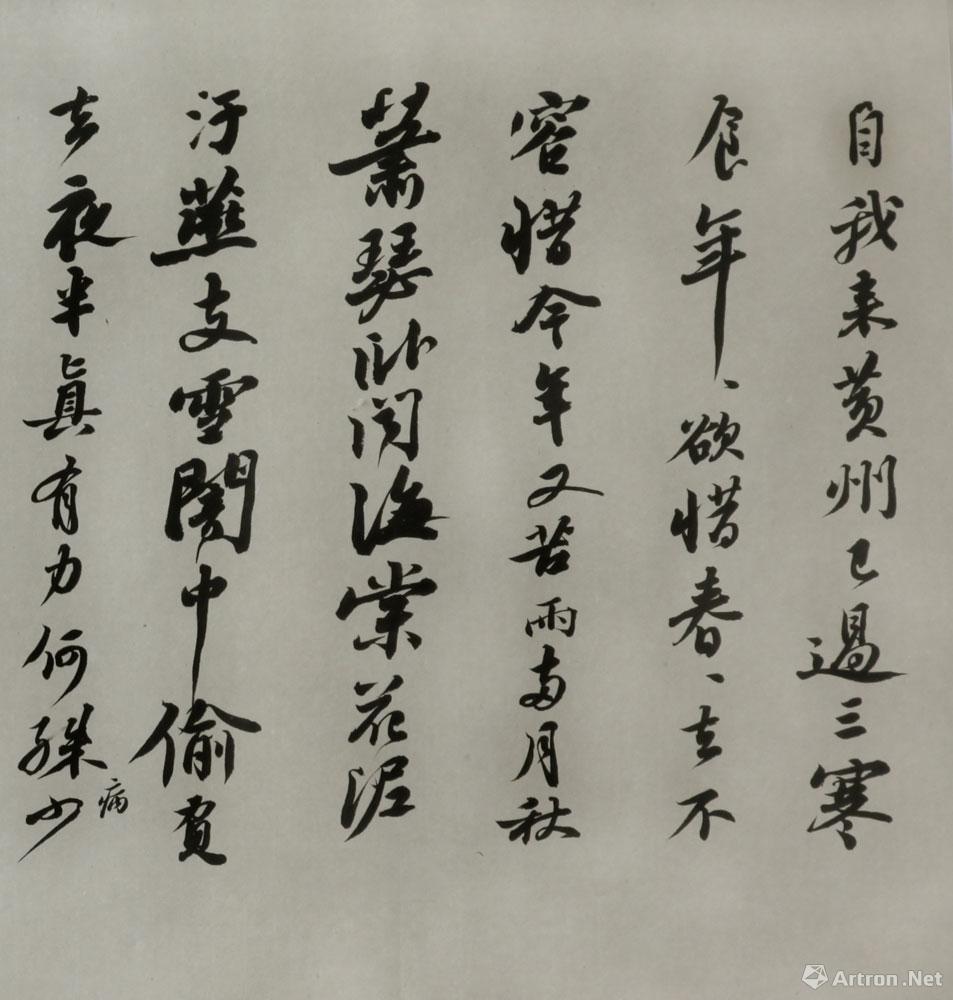 自我来黄州已過三寒
食年、欲惜春、去不
容惜今年又苦雨两月秋
蕭瑟卧闻海棠花泥
汙燕支雪闇中偷負
去夜半真有力何殊少
病
Artron.Net